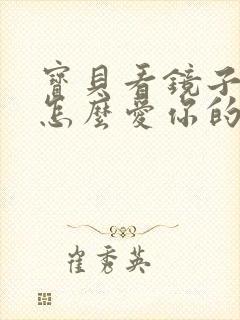 寶貝看鏡子
怎麼愛你的
崔秀英